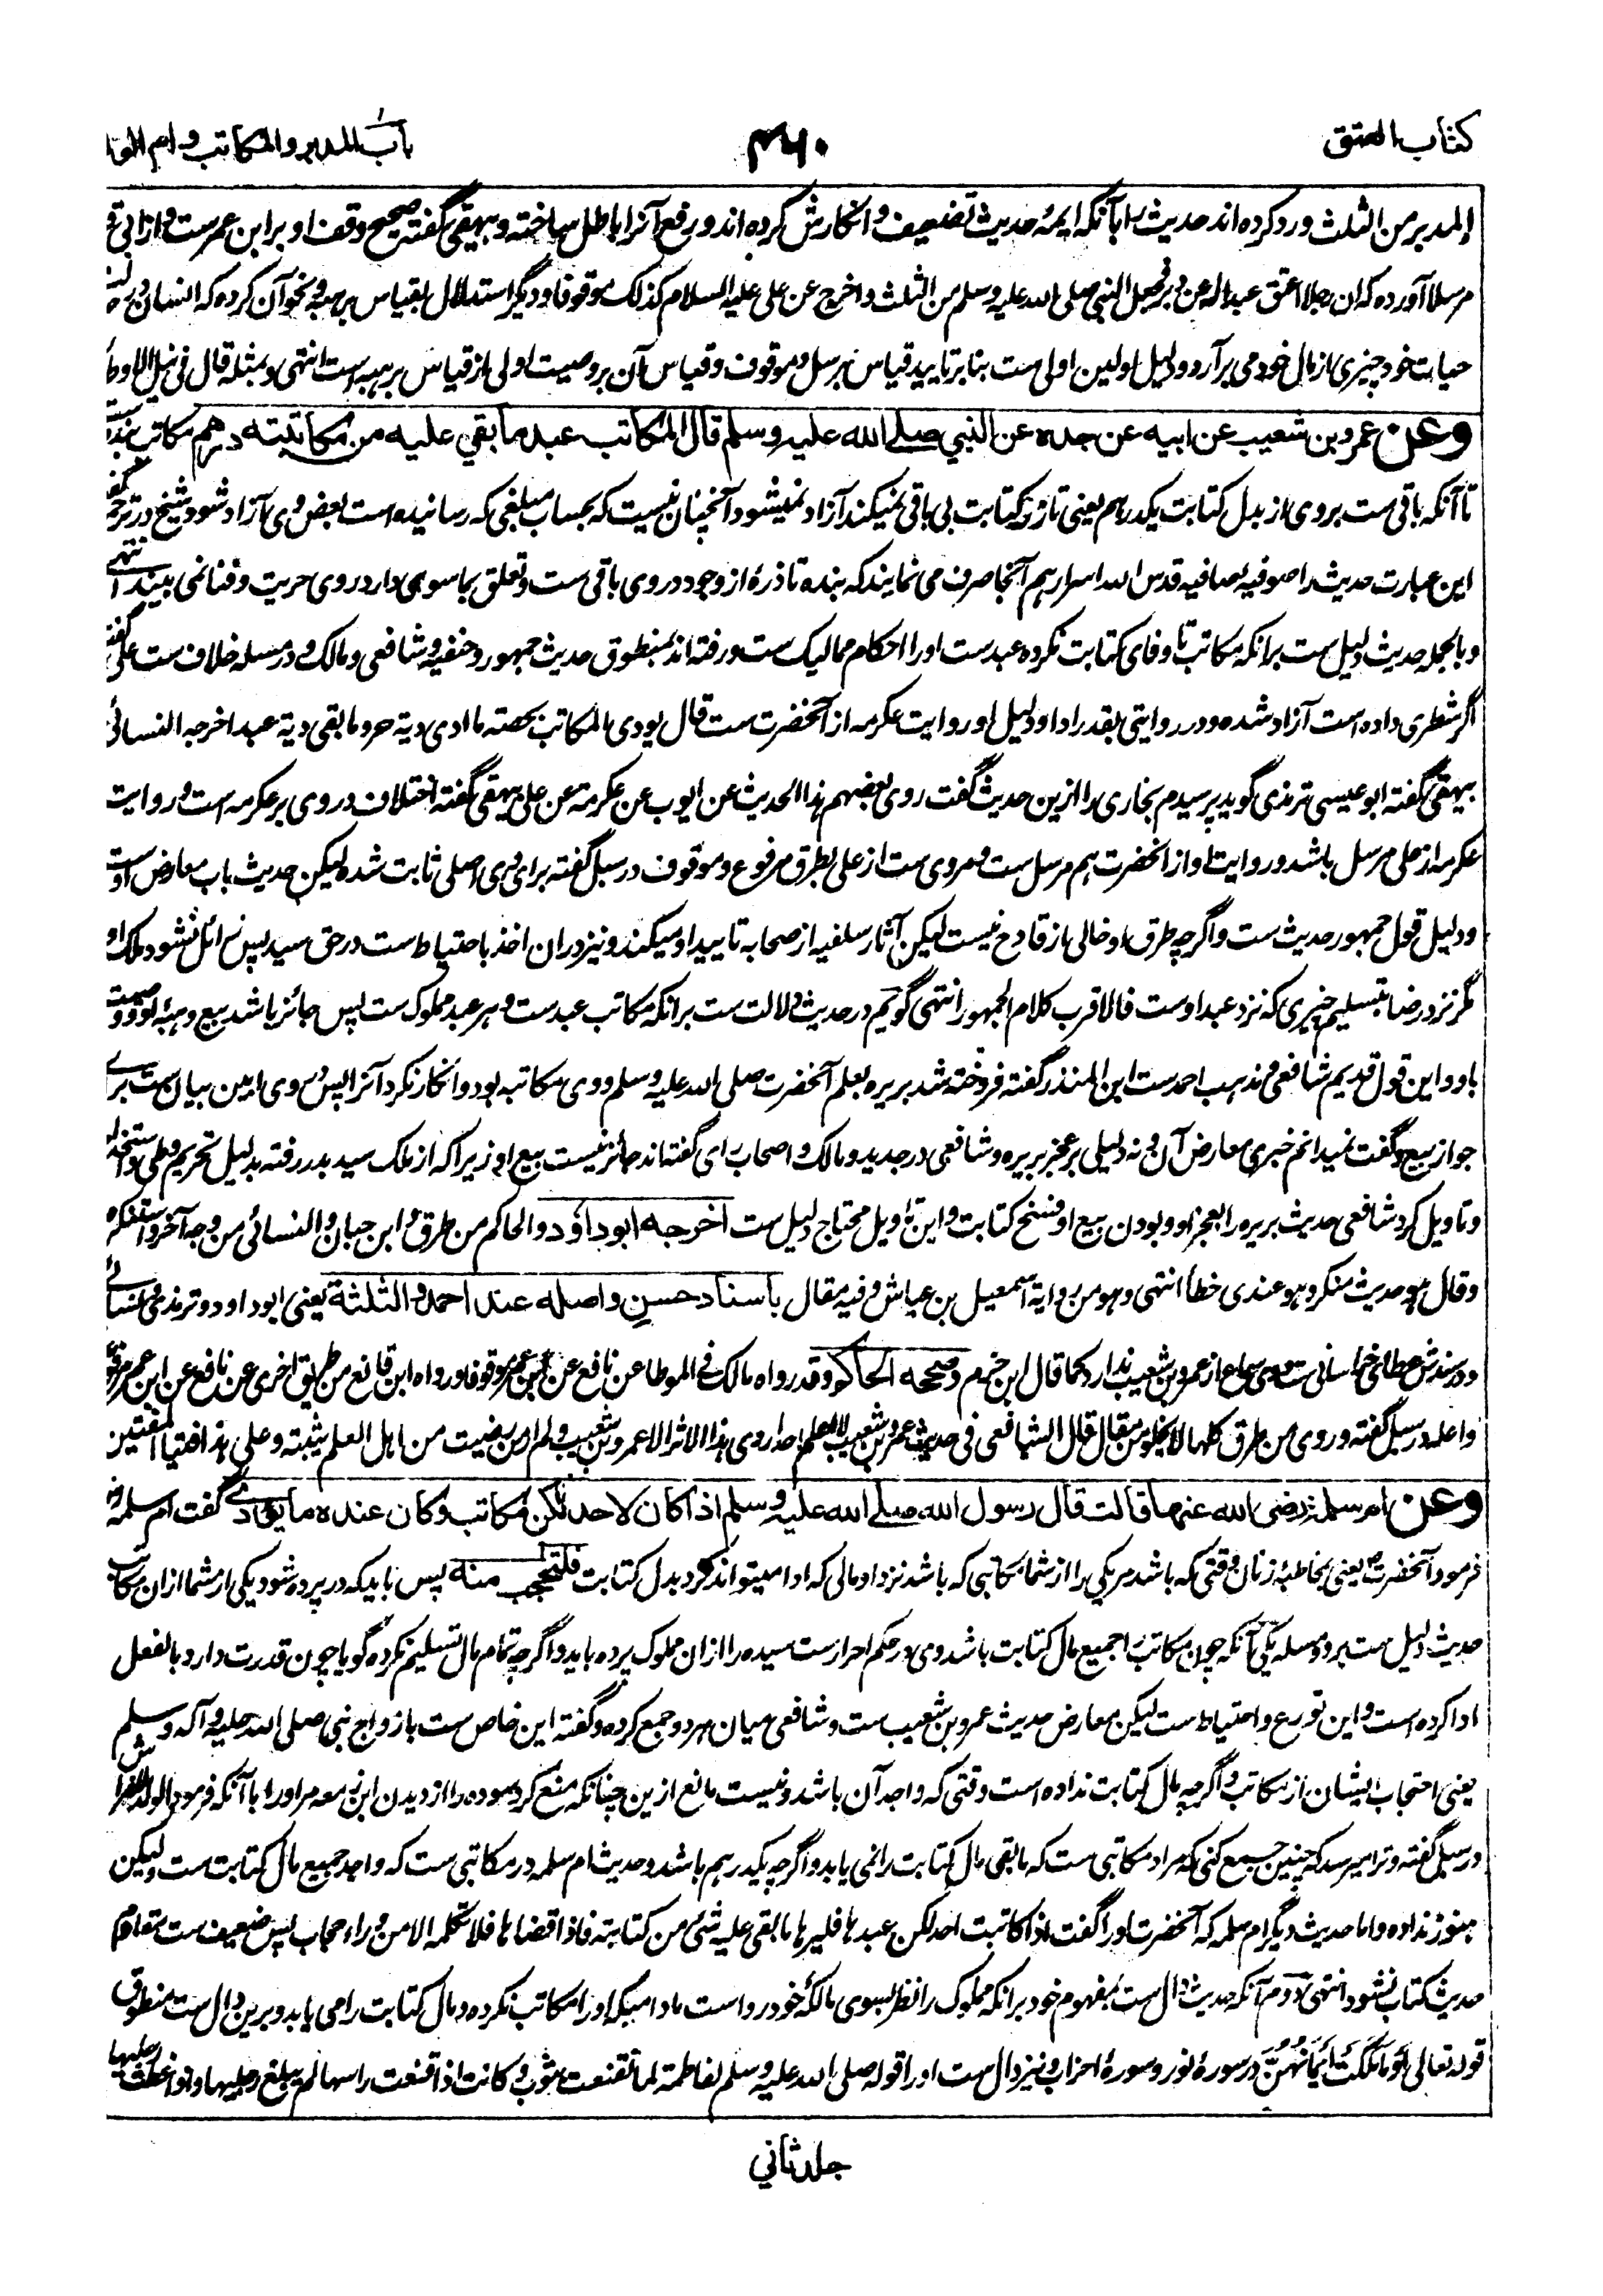 کتاب العتق
۴۶۰
باب المدبر والمکاتب وام الو
المدبر من الثلث ورد کرده اند حدیث را بآنکه ایمهٔ حدیث تضعیف و انکارش کرده اند و رفع آنرا باطل ساخته و بیهقی گفته صحیح وقف او بر ابن عمرست و از ابی
مرسلا آورده که ان رجلا اعتق عبدا له عن دبر فجعل النبی صلی الله علیه وسلم من الثلث واخرج عن علی علیه السلام کذلک موقوفا و دیگر استدلال بقیاس بر هبه و نحو آن کرده که انسان در
حیات خود چیزی از مال خود می برآرد و دلیل اولین اولی ست بنا بر تایید قیاس مرسل و موقوف و قیاس آن بر وصیت اولی از قیاس بر هبه است انتهی و بمثله قال فی نیل الاوطا
وعن عمرو بن شعیب عن ابیه عن جده عن النبي صلے الله علیه وسلم قال المکاتب عبد ما بقي علیه من مکاتبته درهم مکاتب بنده است
تا آنکه باقی ست بر وی از بدل کتابت یکدرهم یعنی تا زر کتابت بی باقی نمیکند آزاد نمیشود آنچنان نیست که بحساب مبلغی که رسانیده است بعض وی آزاد شود شیخ در ترجمه گفته
این عبارت حدیث را صوفیهٔ صافیه قدس الله اسرارهم آنجا صرف می نمایند که بنده تا ذرهٔ از وجود در وی باقی ست و تعلق بماسوی دارد روی حریت و فنا نمی بیند انتهی
وبالجمله حدیث دلیل ست بر آنکه مکاتب تا وفای کتابت نکرده عبدست او را احکام ممالیک ست و رفته اند بمنطوق حدیث جمهور و حنفیه و شافعی و مالک و در مسله خلاف ست علی گفته
اگر شطری داده است آزاد شده و در روایتی بقدر ادا و دلیل او روایت عکرمه از آنحضرت ست قال یودی المکاتب بحصته ما ادی دیة حر و ما بقی دیة عبد اخرجه النسائی
بیهقی گفته ابو عیسی ترمذی گوید پرسیدم بخاری را ازین حدیث گفت روی بعضهم هذا الحدیث عن ایوب عن عکرمة عن علی بیهقی گفته اختلاف در وی بر عکرمه است و روایت
عکرمه از علی مرسل باشد و روایت او از آنحضرت هم مرسل ست و مروی ست از علی بطرق مرفوع و موقوف در سبل گفته برای وی اصلی ثابت شده لیکن حدیث باب معارض اوست
و دلیل قول جمهور حدیث ست و اگرچه طرق او خالی از قادح نیست لیکن آثار سلفیه از صحابه تایید او میکند و نیز در ان اخذ باحتیاط ست در حق سید پس زائل نشود ملک او
مگر نزد رضا بتسلیم چیزی که نزد عبد اوست فالاقرب کلام الجمهور انتهی گویم در حدیث دلالت ست بر آنکه مکاتب عبدست و هر عبد مملوک ست پس جائز باشد بیع و هبهٔ او و وصیت
باو و این قول قدیم شافعی و مذهب احمدست ابن المنذر گفته فروخته شد بریره بعلم آنحضرت صلی الله علیه وسلم و وی مکاتبه بود و انکار نکرد آنرا پس در وی ابین بیان ست برای
جواز بیع و گفت نمیدانم خبری معارض آن و نه دلیلی بر عجز بریره و شافعی در جدید و مالک و اصحاب رای گفته اند جائز نیست بیع او زیرا که از ملک سید بدر رفته بدلیل تحریم وطی و استخدام
و تاویل کرد شافعی حدیث بریره را بعجز او و بودن بیع او فسخ کتابت و این تاویل محتاج دلیل ست اخرجه ابو داؤد والحاکم من طرق و ابن حبان و النسائی من وجه آخر و استنکره
وقال هو حدیث منکر و هو عندی خطأ انتهی و هو من روایة اسمعیل بن عیاش و فیه مقال باسناد حسن واصله عند احمد والثلثة یعنی ابو داود و ترمذی و نسائی
و در سندش عطای خراسانی ست و وی سماع از عمرو بن شعیب ندارد کما قال ابن حزم وصححه الحاکم وقد رواه مالک فی الموطا عن نافع عن ابن عمر موقوفا و رواه ابن قانع من طریق اخری عن نافع عن ابن عمر مرفوعا
واعله در سبل گفته و روی من طرق کلها لا یخلو من مقال قال الشافعی فی حدیث عمرو بن شعیب لا اعلم احدا روی هذا الاثر الا عمرو بن شعیب و لم ار من رضیت من اهل العلم یثبته و علی هذا فتیا المفتین
وعن ام سلمة رضی الله عنها قالت قال رسول الله صلے الله علیه وسلم اذا کان لاحدیکن مکاتب وکان عنده ما یؤدی گفت ام سلمه
فرمود آنحضرت یعنی بمخاطبهٔ زنان وقتی که باشد مر یکی را از شما مکاتبی که باشد نزد او مالی که ادا میتواند کرد بدل کتابت فلتحتجب منه پس باید که در پرده شود یکی از شما از ان مکاتب
حدیث دلیل ست بر دو مسله یکی آنکه چون مکاتب را جمیع مال کتابت باشد وی در حکم احرارست سیده را از ان مملوک پرده باید و اگرچه تمام مال تسلیم نکرده گویا چون قدرت دارد بالفعل
ادا کرده است و این تورع و احتیاط ست لیکن معارض حدیث عمرو بن شعیب ست و شافعی میان هر دو جمع کرده و گفته این خاص ست بازواج نبی صلی الله علیه و آله وسلم
یعنی احتجاب ایشان از مکاتب و اگرچه مال کتابت نداده است وقتی که واجد آن باشد و نیست مانع ازین چنانکه منع کرد سوده را از دیدن ابن زمعه مر او را با آنکه فرمود الولد للفراش
در سبل گفته و ترا میرسد که چنین جمع کنی که مراد مکاتبی ست که مابقی مال کتابت را نمی یابد و اگرچه یکدرهم باشد و حدیث ام سلمه در مکاتبی ست که واجد جمیع مال کتابت ست ولیکن
هنوز نداده و اما حدیث دیگر ام سلمه که آنحضرت او را گفت اذا کاتبت احداکن عبدها فلیرها ما بقی علیه شئ من کتابته فاذا قضاها فلا تکلمه الا من وراء حجاب پس ضعیف ست مقاوم
حدیث کتاب نشود انتهی دوم آنکه حدیث دال ست بمفهوم خود بر آنکه مملوک را نظر بسوی مالکهٔ خود رواست مادامیکه او را مکاتب نکرده و مال کتابت را می یابد و برین دال ست منطوق
قوله تعالی او ما ملکت ایمانهن در سورهٔ نور و سورهٔ احزاب و نیز دال ست او را قوله صلی الله علیه وسلم لفاطمة لما تقنعت بثوب و کانت اذا قنعت راسها لم یبلغ رجلیها و اذا غطت رجلیها
جلد ثاني